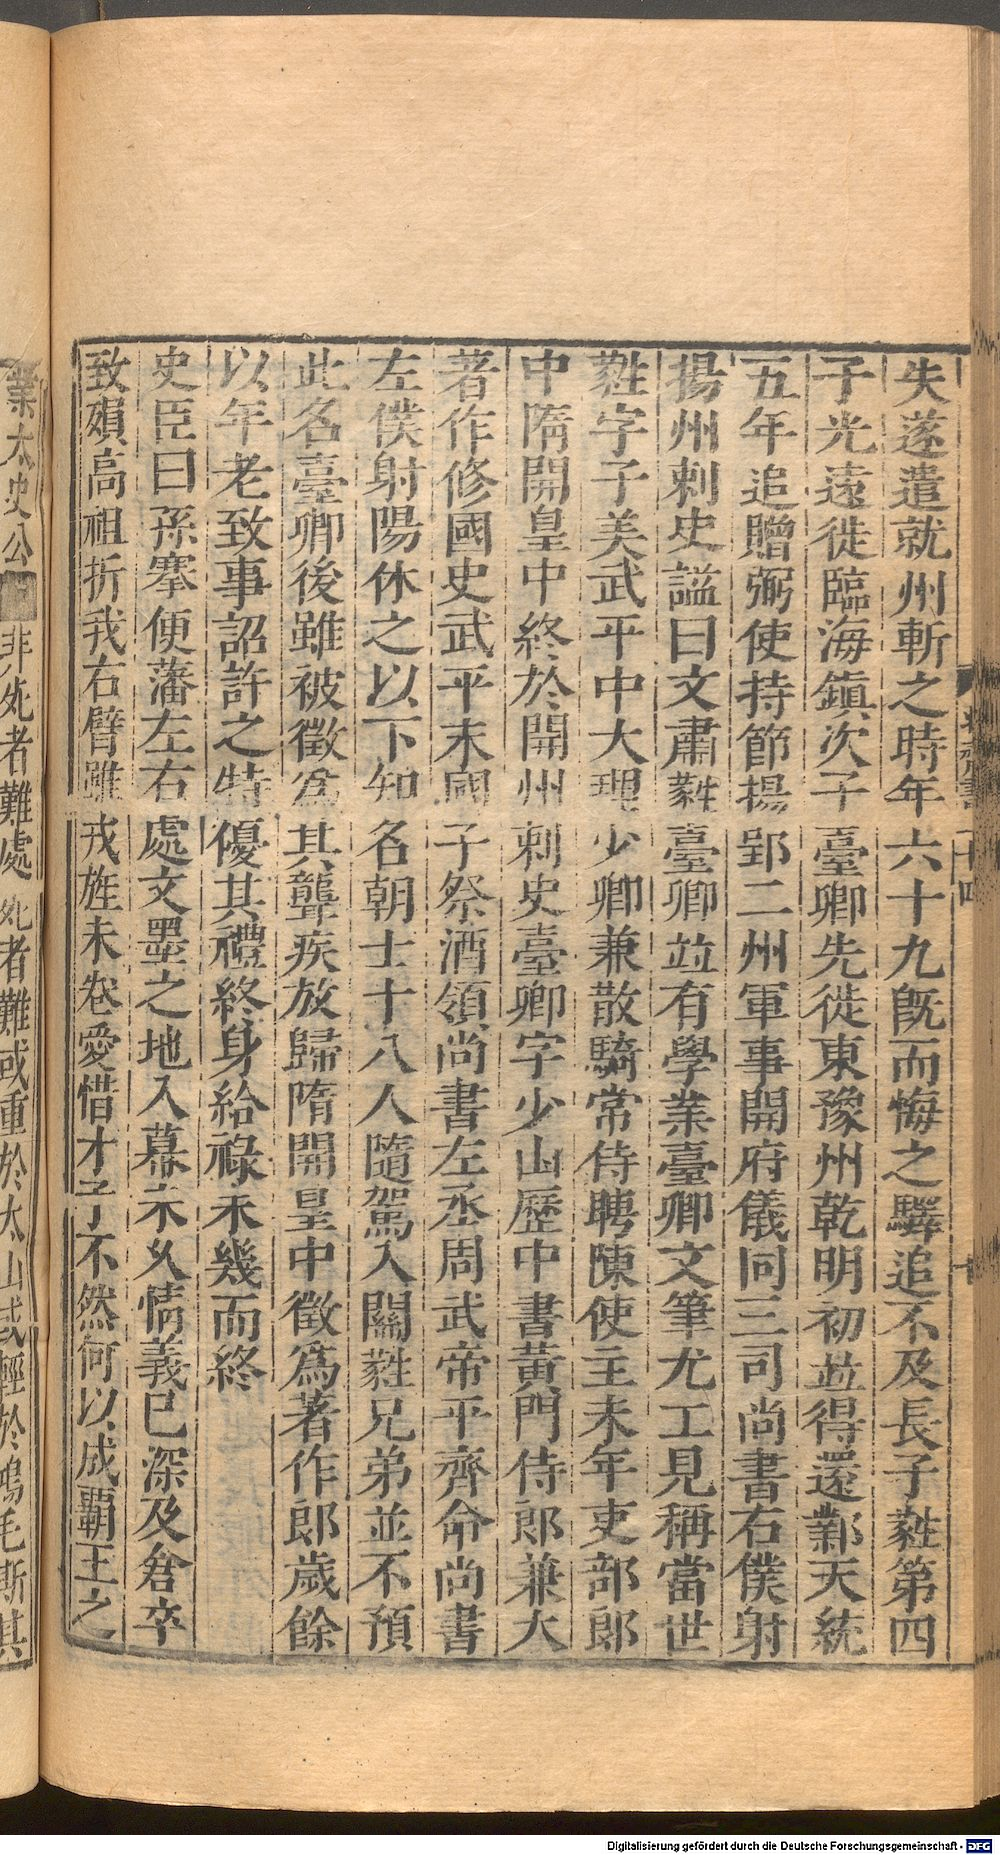 失遂遣就州斬之時年六十九旣而悔之驛追不及長子蕤第四
子光遠徙臨海鎮次子臺卿先徙東豫州乾明初並得還鄴天統
五年追贈弼使持節揚郢二州軍事開府儀同三司尚書右僕射
揚州刺史謚曰文肅蕤臺卿並有學業臺卿文筆尤工見稱當世
蕤字子美武平中大理少卿兼散騎常侍聘陳使主末年吏部郎
中隋開皇中終於開州刺史臺卿字少山歷中書黃門侍郎兼大
著作修國史武平末國子祭酒領尚書左丞周武帝平齊命尚書
左僕射陽休之以下知名朝士十八人隨駕入關蕤兄弟並不預
此名臺卿後雖被徵爲其聾疾放歸隋開皇中徵爲著作郎歲餘
以年老致事詔許之特優其禮終身給祿未幾而終
史臣曰孫搴便藩左右處文墨之地入幕未久情義已深及倉卒
致殞高祖折我右臂雖戎旌未卷愛惜才子不然何以成覇王之
業太史公
非死者難處死者難或重於太山或輕於鴻毛斯其
Digitalisierung gefördert durch die Deutsche Forschungsgemeinschaft - DFG